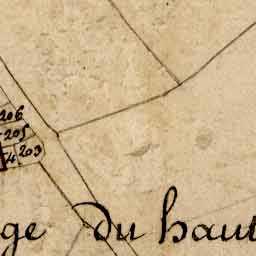 206
205
203
4
ge du haut